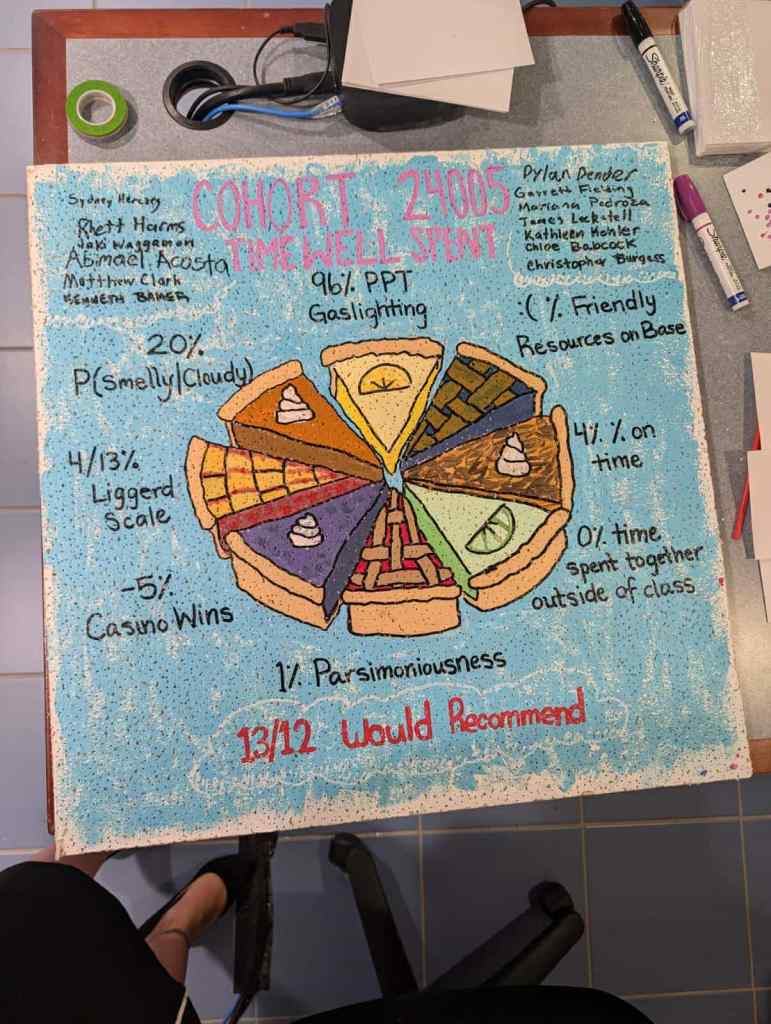 COHORT 24005
TIME WELL SPENT
Sydney
Rhett Harms
Jaki Waggamon
Abimael Acosta
Matthew Clark
KENNETH BAKER
Dylan Dender
Garrett Fielding
Mariana Pedroza
James
Kathleen Hohler
Chloe Babcock
Christopher Burgess
96% PPT
Gaslighting
:( % Friendly
Resources on Base
20%
P(Smelly/Cloudy)
4% % on
time
4/13%
Liggerd
Scale
0% time
spent together
outside of class
-5%
Casino Wins
1% Parsimoniousness
13/12 Would Recommend
Sharpie
Sharpie